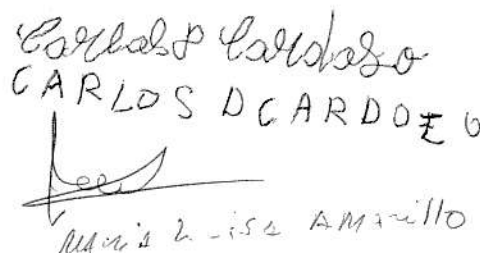 Carlos D Cardozo
CARLOS D CARDOZO
Maria Luisa AMarillo